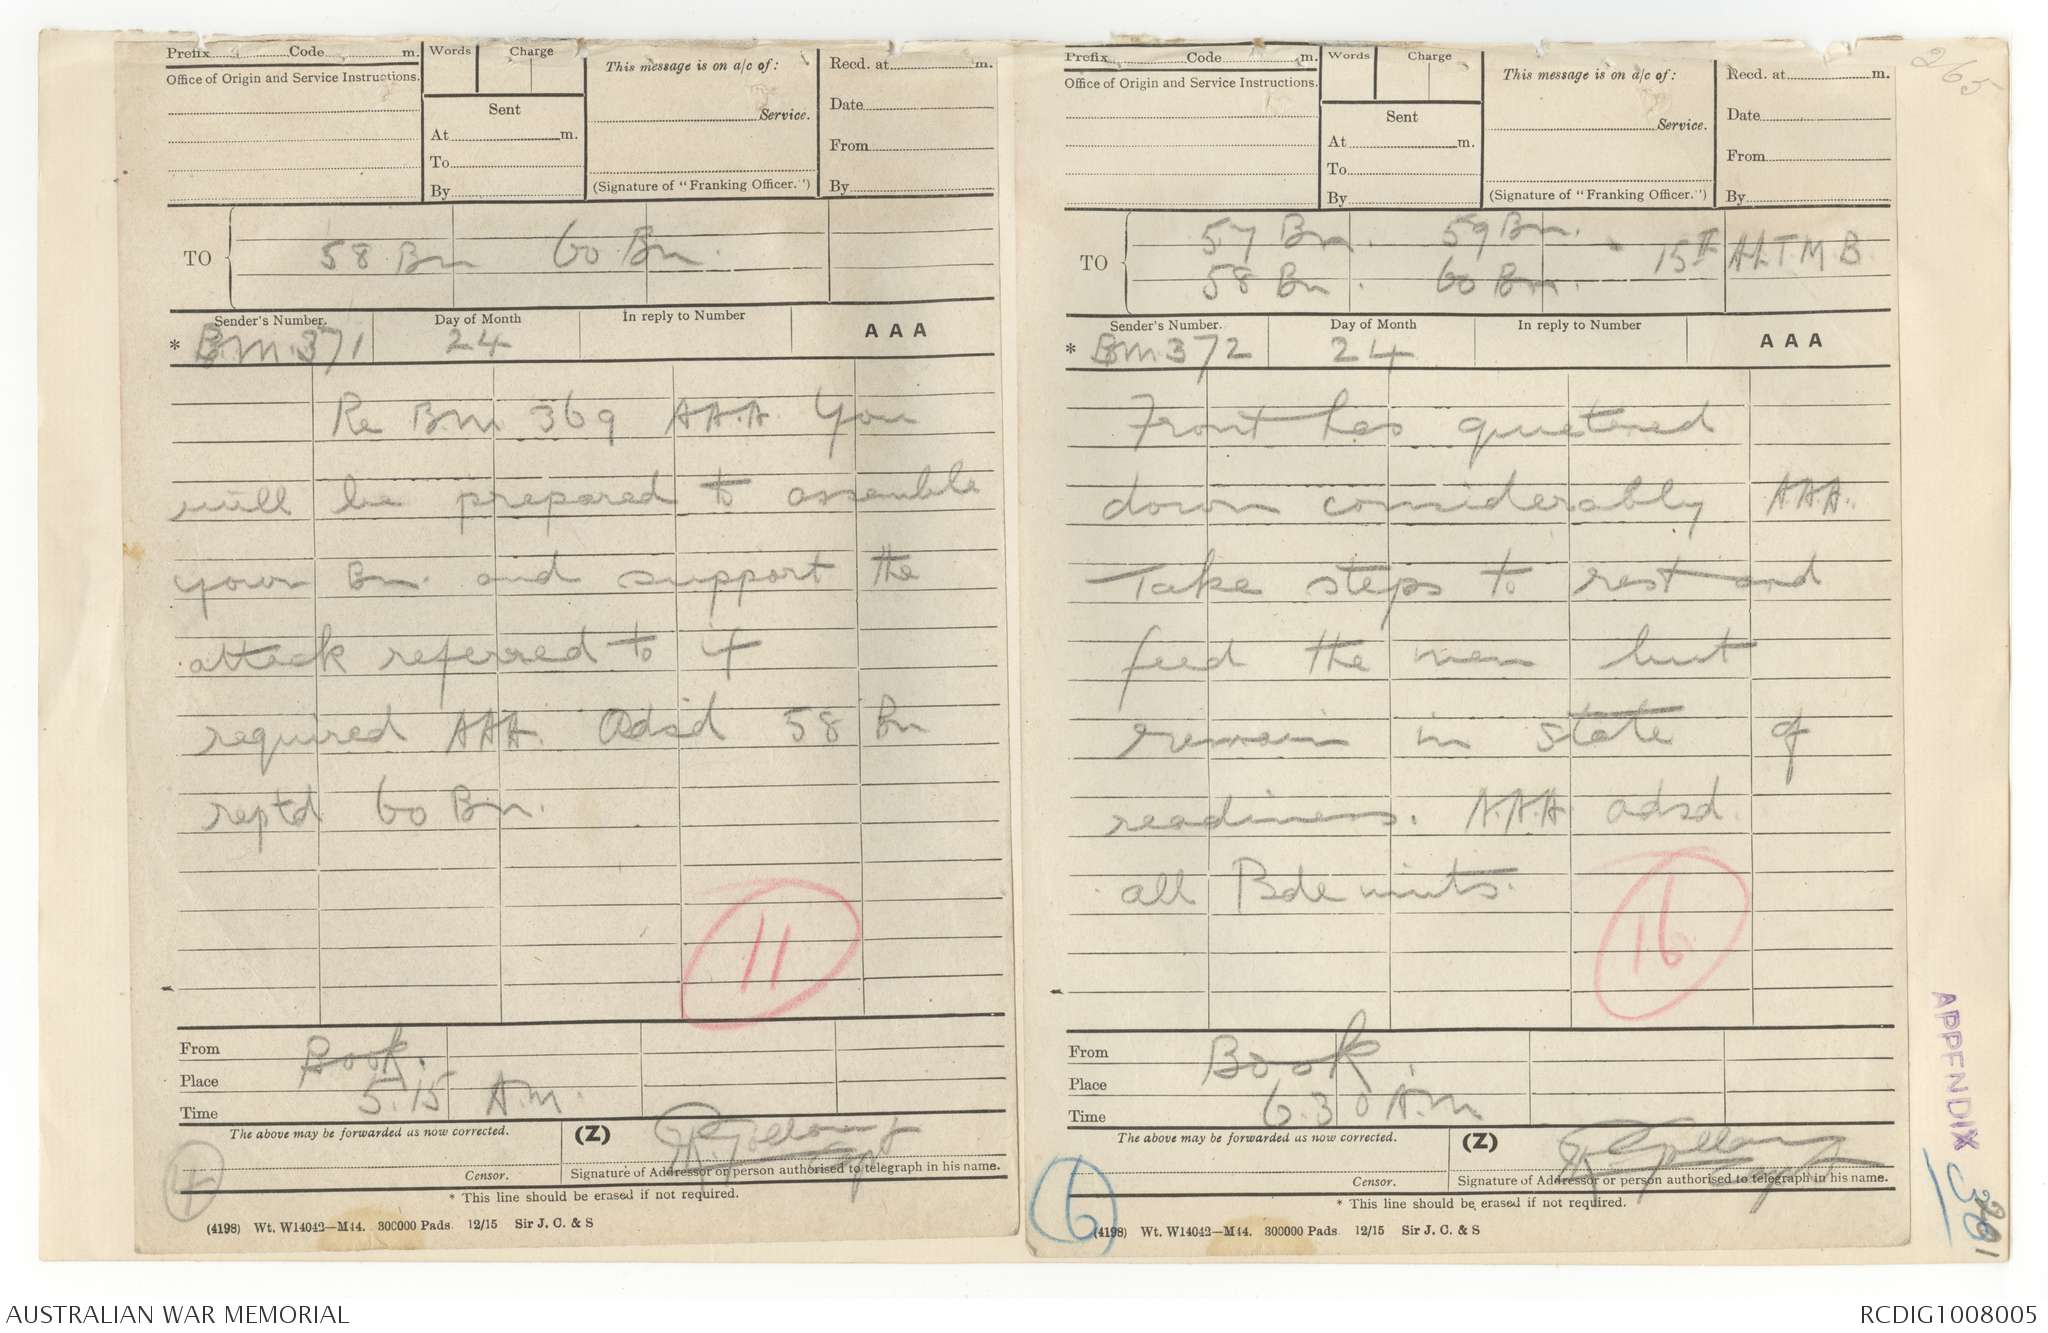 Prefix Code m.
Words Charge
This message is on a/c of:
Recd. at m.
Office of Origin and Service Instructions.
Sent
Date
Service.
At m.
From
To
(Signature of "Franking Officer.")
By
By
TO
58 Bn 60 Bn.
Sender's Number. Day of Month In reply to Number AAA
* B.M. 371 24
Re B.M 369 A.A.A. You
will be prepared to assemble
your Bn. and support the
attack referred to if
required AAA. Adsd 58 Bn
reptd 60 Bn.
11
From Book.
Place
Time 5.15 A.M.
The above may be forwarded as now corrected. (Z)
Capt
Censor. Signature of Addressor or person authorised to telegraph in his name.
* This line should be erased if not required.
(4198) Wt. W14042—M44. 300000 Pads 12/15 Sir J. C. & S
Prefix Code m.
Words Charge
This message is on a/c of:
Recd. at m.
Office of Origin and Service Instructions.
Sent
Date
Service.
At m.
From
To
(Signature of "Franking Officer.")
By
By
265
57 Bn. 59 Bn.
TO 15th ALTMB
58 Bn. 60 Bn.
Sender's Number. Day of Month In reply to Number AAA
* BM.372 24
Front has quietened
down considerably A.A.A.
Take steps to rest and
feed the men but
remain in state of
readiness. A.A.A adsd.
all Bde units.
16
From Book.
Place
Time 6.30 A.M
The above may be forwarded as now corrected. (Z)
Capt
Censor. Signature of Addressor or person authorised to telegraph in his name.
* This line should be erased if not required.
6
(4198) Wt. W14042—M44. 300000 Pads 12/15 Sir J. C. & S
APPENDIX
AUSTRALIAN WAR MEMORIAL
RCDIG1008005